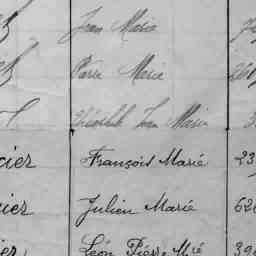 Jean Marie
Pierre Marie
Jean Marie
cier François Marie 23
cier Julien Marié 62
ier Léon Pierre Mré 39